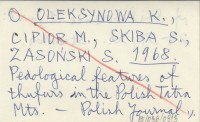 O OLEKSYNOWA K.,
CIPIOR M., SKIBA S.,
ZASOŃSKI S. 1968.
Pedological features of
thufurs in the Polish Tatra
Mts. – Polish Journal